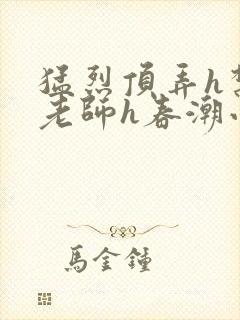 猛烈頂弄h
老師h春潮
馬金鍾